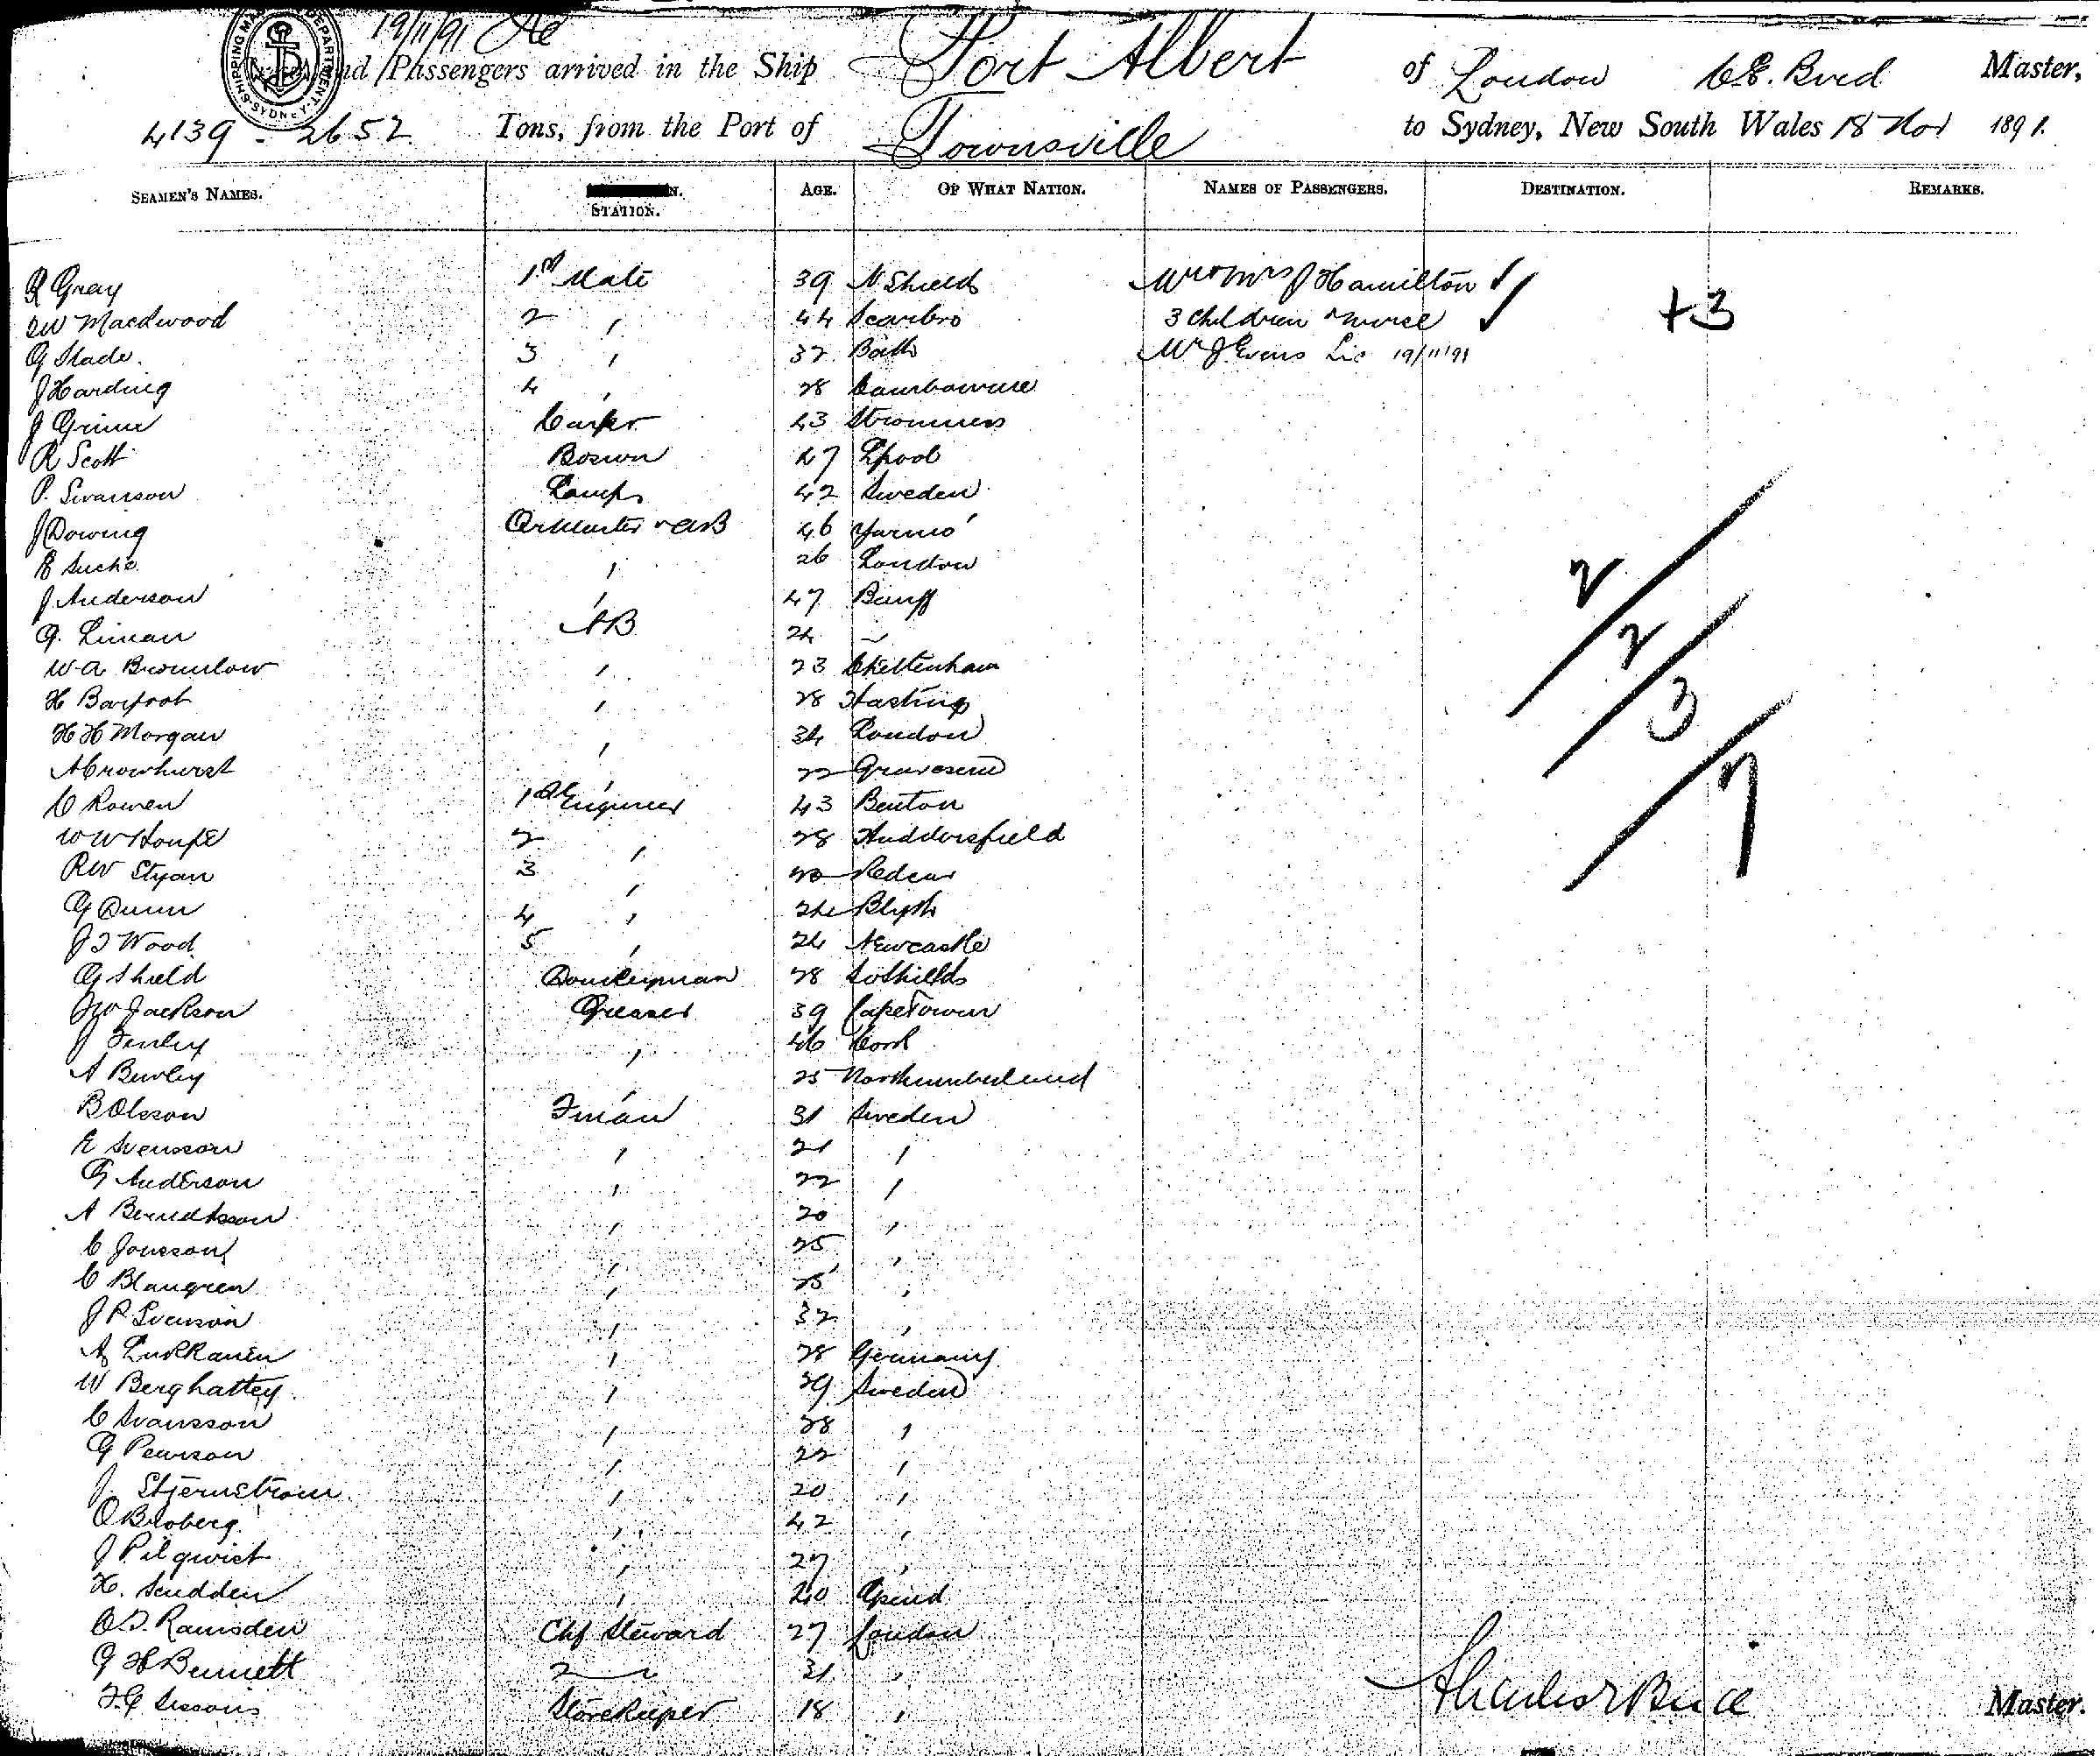 19/11/91
SHIPPING MA DEPARTMENT SYDNEY
nd Passengers arrived in the Ship Port Albert of London C.E. Bird Master,
4139 - 2652 Tons, from the Port of Townsville to Sydney, New South Wales 18 Nov 1891.
SEAMEN'S NAMES. STATION. AGE. OF WHAT NATION. NAMES OF PASSENGERS. DESTINATION. REMARKS.
R Gray 1st Mate 39 N Shields Mr & Mrs J Hamilton
Macdwood 2 " 44 Scarbro 3 Children & nurse +3
G Slade. 3 " 32 Bath Mr J Evans Lic 19/11/91
J Harding 4 " 28
J Grimm Carpr 43 Stromness
R Scott Boswn 47 Lpool
P. Swanson Lamps 42 Sweden
J Dowing Qr Master & AB 46 Yarmo'
" 26 London
J Anderson " 47 Banff
G. Linian AB 24 ~
W A Brownlow " 23 Cheltenham
H Barfoot " 28 Hastings
H H Morgan " 34 London
A Crowhurst " 22 Gravesend
C Rowen 1st Engineer 43 Benton
W W Houfe 2 " 28 Huddersfield
R W Styan 3 " Redcar
G Dunn 4 " 24 Blyth
J T Wood 5 " 24 Newcastle
G Shield Donkeyman 28 So Shields
J W Jackson Greaser 39 Cape Town
J Fenley " 46 Cork
A Bewley " 25 Northumberland
B Olsson Fman 31 Sweden
E Svensson " 21 "
G Anderson " 22 "
A Berndtsson " 20 "
C Jonsson " 25 "
C Blangren " 25 "
J P Svenson " 32 "
A Lukkanen " 28 Germany
W Berghattey " 29 Sweden
C Svansson " 28 "
G Pearson " 22 "
J. Stjernstrom " 20 "
O Broberg " 42 "
J Pilqwist " 27 "
H. Scudden " 20
O.T. Ramsden Chf Steward 27 London
G H Burnett 2 " 31 "
F.G Sissons Storekeeper 18 "
2/2/3/7
Charles E Bird Master.